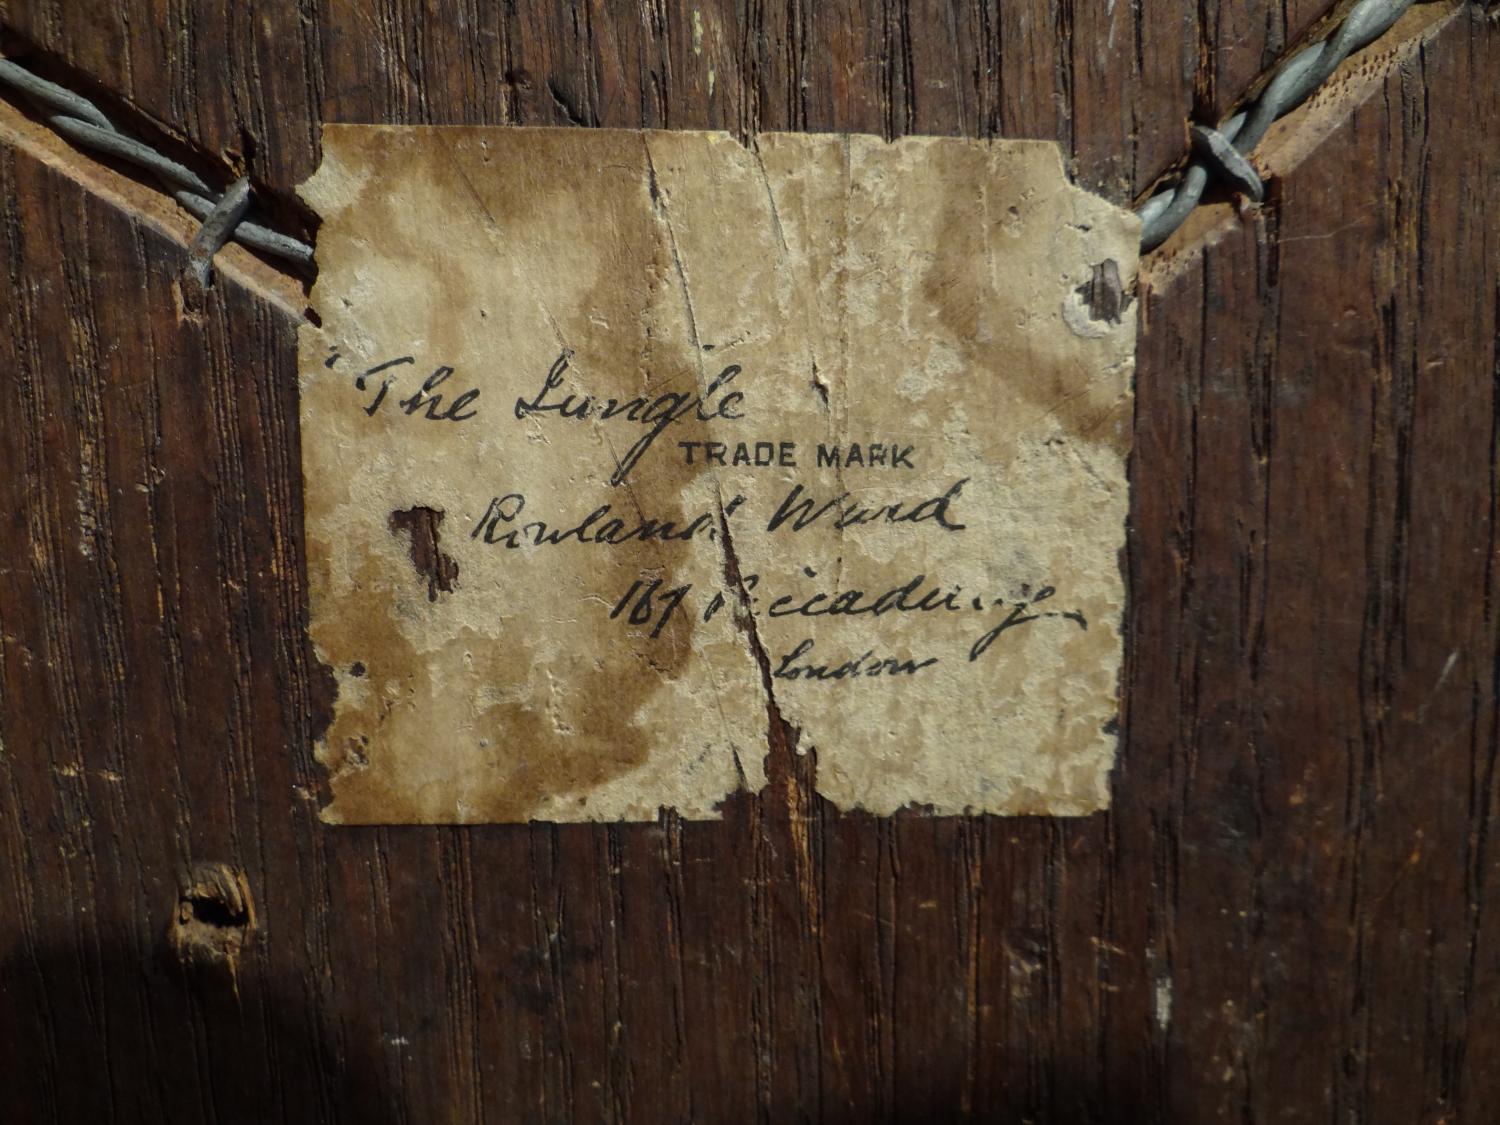 "The Jungle"
TRADE MARK
Rowland Ward
167 Piccadilly
London